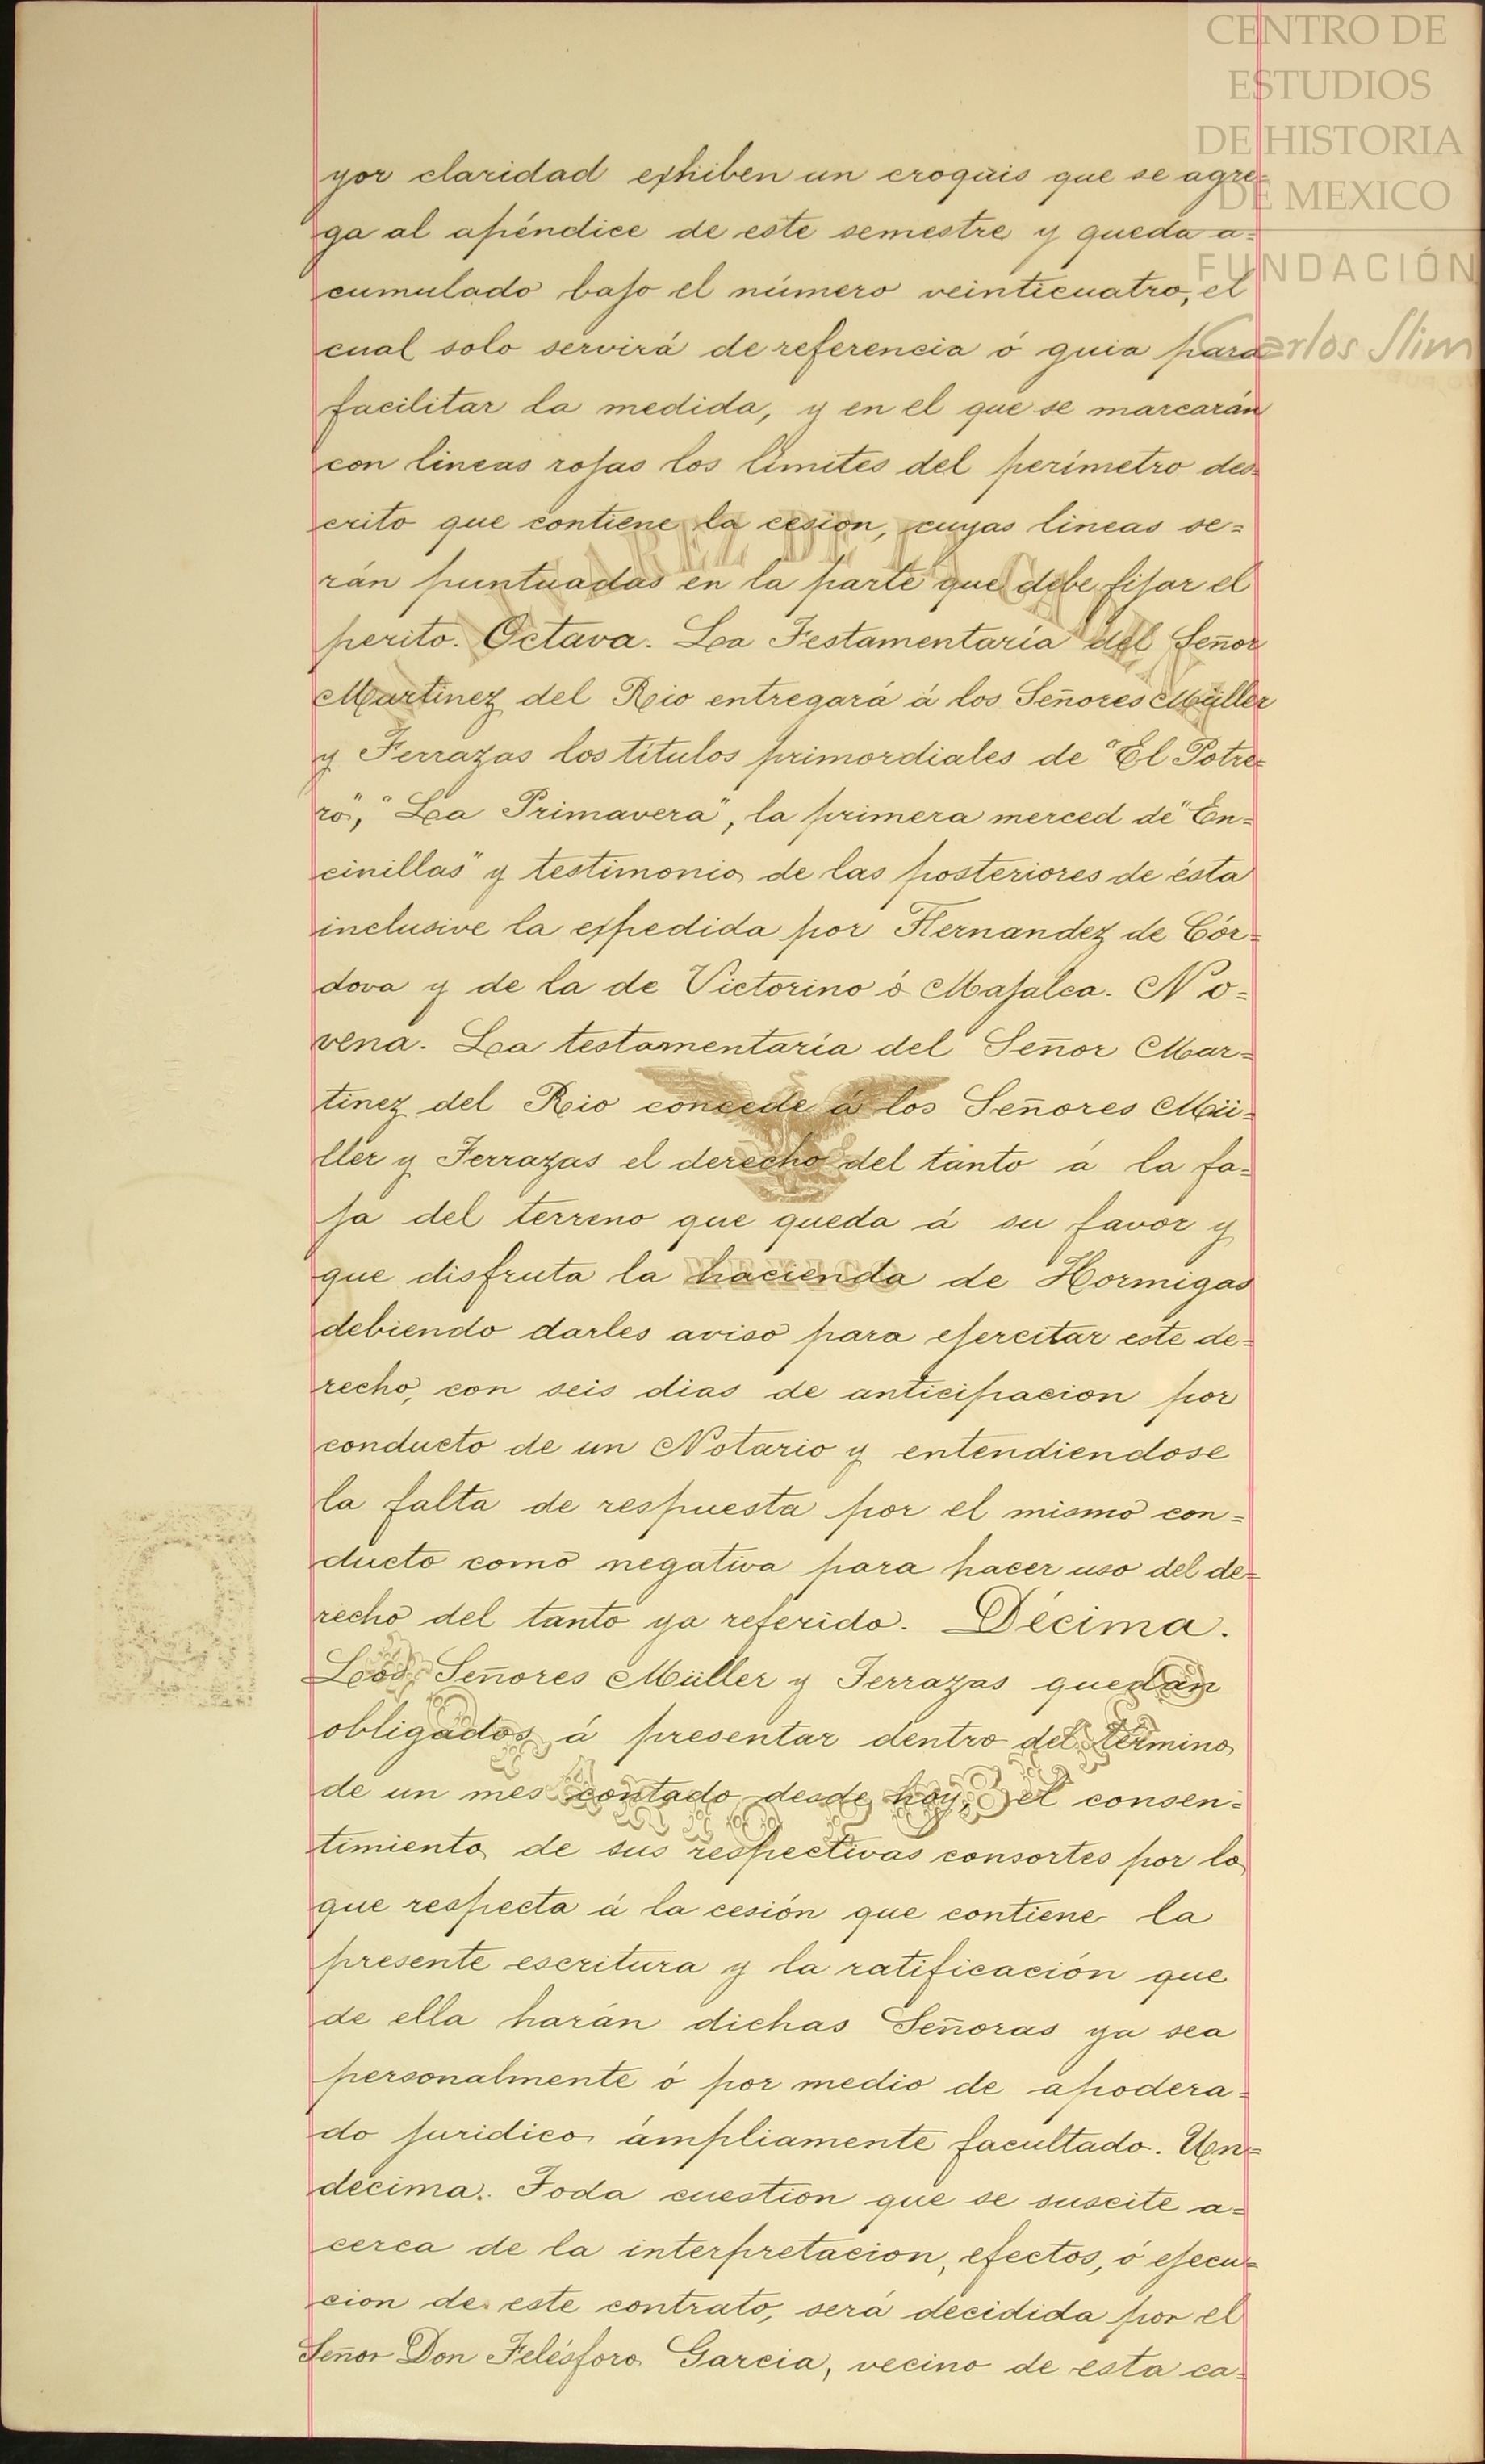 CENTRO DE
ESTUDIOS
DE HISTORIA
DE MEXICO
FUNDACIÓN
Carlos Slim
yor claridad exhiben un croquis que se agre-
ga al apéndice de este semestre y queda a=
cumulado bajo el número veinticuatro, el
cual solo servirá de referencia ó guia para
facilitar la medida, y en el que se marcarán
con lineas rojas los límites del perímetro des-
crito que contiene la cesion, cuyas lineas se=
rán puntuadas en la parte que debe fijar el
perito. Octava. La Testamentaría del Señor
Martinez del Rio entregará á los Señores Müller
y Terrazas los títulos primordiales de "El Potre=
ro", "La Primavera", la primera merced de "En=
cinillas" y testimonio de las posteriores de ésta
inclusive la expedida por Hernandez de Cór=
dova y de la de Victorino ó Majalca. No=
vena. La testamentaría del Señor Mar=
tinez del Rio concede á los Señores Mü=
ller y Terrazas el derecho del tanto á la fa=
ja del terreno que queda á su favor y
que disfruta la hacienda de Hormigas
debiendo darles aviso para ejercitar este de=
recho, con seis dias de anticipacion por
conducto de un Notario y entendiendose
la falta de respuesta por el mismo con=
ducto como negativa para hacer uso del de=
recho del tanto ya referido. Décima.
Los Señores Müller y Terrazas quedan
obligados á presentar dentro del término
de un mes contado desde hoy, el consen=
timiento de sus respectivas consortes por lo
que respecta á la cesión que contiene la
presente escritura y la ratificación que
de ella harán dichas Señoras ya sea
personalmente ó por medio de apodera=
do juridico ámpliamente facultado. Un=
décima. Toda cuestion que se suscite a=
cerca de la interpretacion, efectos, ó ejecu=
cion de este contrato, será decidida por el
Señor Don Telésforo Garcia, vecino de esta ca=
MEXICO